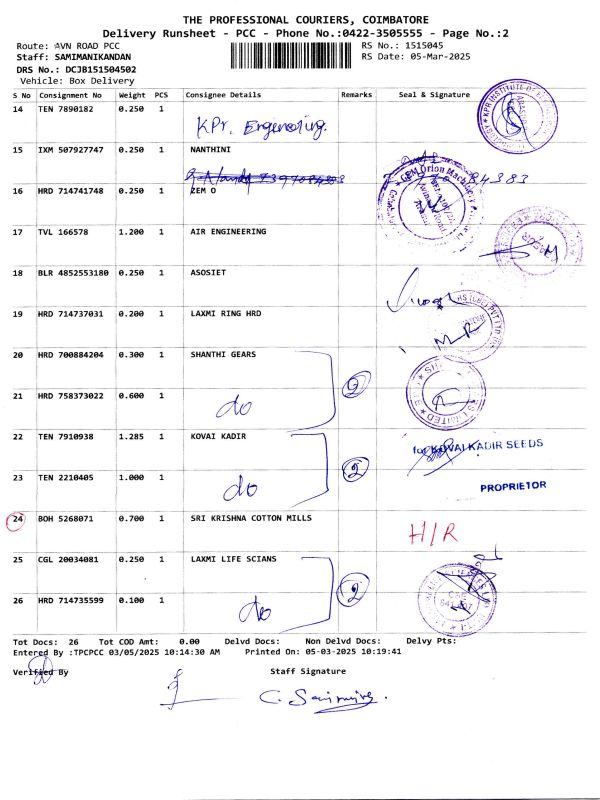 THE PROFESSIONAL COURIERS, COIMBATORE
Delivery Runsheet - PCC - Phone No.:0422-3505555 - Page No.:2
Route: AVN ROAD PCC RS No.: 1515045
Staff: SAMIMANIKANDAN RS Date: 05-Mar-2025
DRS No.: DCJB151504502
Vehicle: Box Delivery
S No Consignment No Weight PCS Consignee Details Remarks Seal & Signature
14 TEN 7890182 0.250 1
KPr. Engeneering.
15 IXM 507927747 0.250 1 NANTHINI
84383
16 HRD 714741748 0.250 1 ZEM O
17 TVL 166578 1.200 1 AIR ENGINEERING
18 BLR 4852553180 0.250 1 ASOSIET
19 HRD 714737031 0.200 1 LAXMI RING HRD
20 HRD 700884204 0.300 1 SHANTHI GEARS
2
21 HRD 758373022 0.600 1
do
22 TEN 7910938 1.285 1 KOVAI KADIR
for KOVAI KADIR SEEDS
2
23 TEN 2210405 1.000 1
do
PROPRIETOR
24 BOH 5268071 0.700 1 SRI KRISHNA COTTON MILLS
H/R
25 CGL 20034081 0.250 1 LAXMI LIFE SCIANS
2
26 HRD 714735599 0.100 1
do
Tot Docs: 26 Tot COD Amt: 0.00 Delvd Docs: Non Delvd Docs: Delvy Pts:
Entered By :TPCPCC 03/05/2025 10:14:30 AM Printed On: 05-03-2025 10:19:41
Verified By Staff Signature